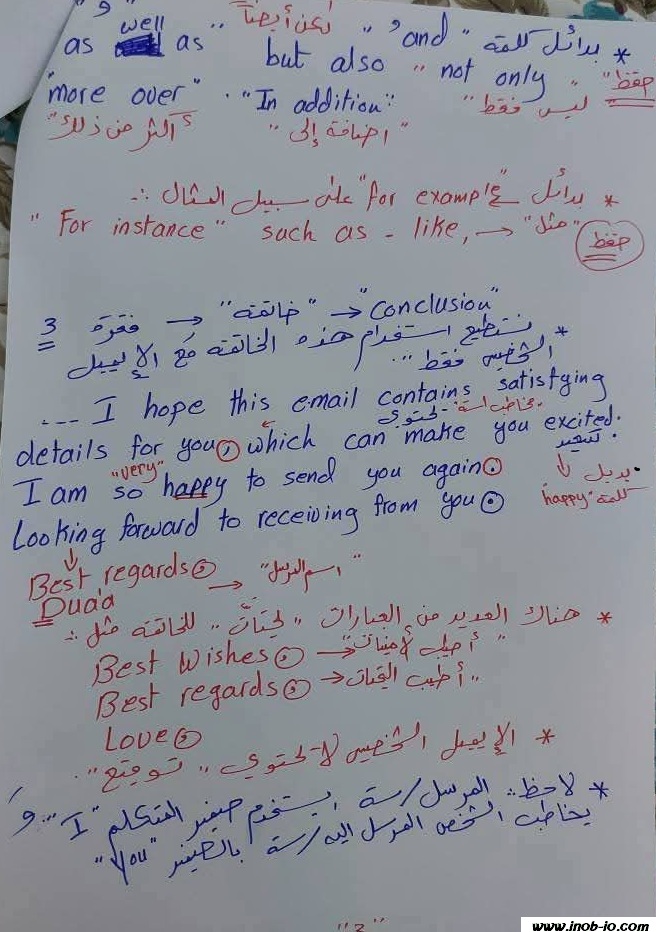 * بدائل كلمة "and" "و" ,, لكن أيضاً ,, "و"
as well as but also ,, not only ,, حفظ
"more over" . "In addition" ,, ليس فقط
"إضافة إلى" "أكثر من ذلك"
* بدائل "for example" على سبيل المثال :-
"For instance" such as - like, → "مثل" حفظ
3 فقرة ← "خاتمة" ← "conclusion"
* نستطيع استخدام هذه الخاتمة مع الإيميل
الشخصي فقط ,,
.... I hope this email contains satisfying
تحتوي
details for you, which can make you excited.
I am so "very" happy to send you again.
بديل كلمة "happy"
Looking forward to receiving from you.
Best regards, → "اسم المرسل"
Dua'a
* هناك العديد من العبارات ,, للخاتمة مثل :-
Best Wishes, → "أطيب الأمنيات"
Best regards, → ,, أطيب التحيات
Love,
* الإيميل الشخصي لا تحتوي ,, توقيع "
* لاحظ :- المرسل/سة يستخدم ضمير المتكلم "I" و
يخاطب الشخص المرسل إليه/سة بالضمير "you"
"2"
www.inob-io.com